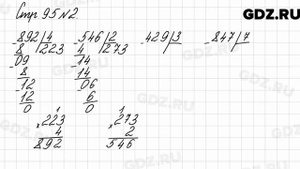 GDZ.RU
Стр 95 №2
-892|4 -546|2 -429|3 -847|7
8 |223 4 |273
-09 -14
8 14
-12 06
12 6
0 0
1 1
×223 ×273
4 2
892 546